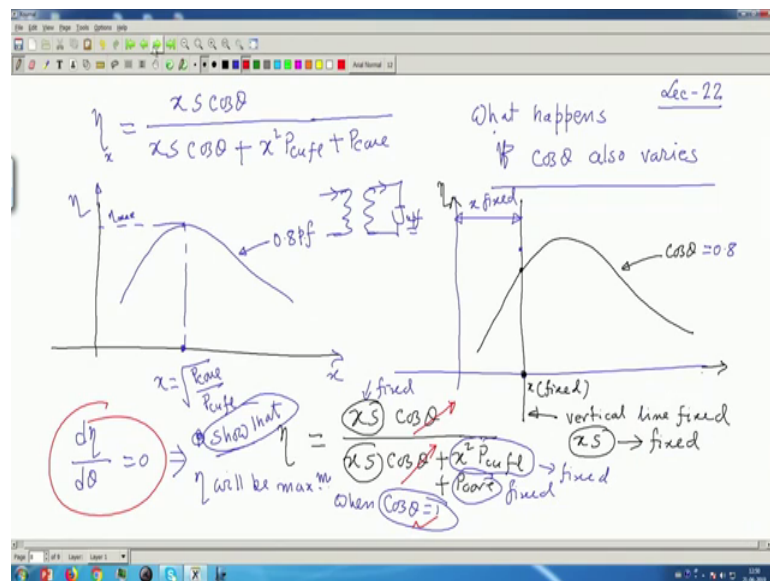 File Edit View Page Tools Options Help
Arial Normal 12
Lec-22
η_x = xS cosθ / (xS cosθ + x² Pcufl + Pcore)
What happens
if cosθ also varies
η
ηmax
0.8 pf
x
x = √(Pcore / Pcufl)
η
x fixed
cosθ = 0.8
x (fixed)
vertical line fixed
xS → fixed
dη/dθ = 0 ⇒
Show that
η will be max^m
when cosθ = 1
fixed
η = xS cosθ / (xS cosθ + x² Pcufl + Pcore)
→ fixed
fixed
Page 8 of 8 Layer: Layer 1
12:50